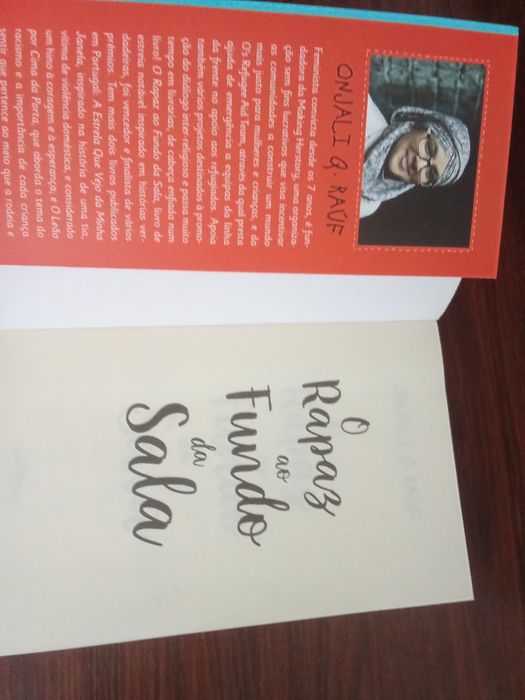 ONJALI Q. RAÚF
Feminista convicta desde os 7 anos, é fun-
dadora da Making Herstory, uma organiza-
ção sem fins lucrativos que visa incentivar
as comunidades a construir um mundo
mais justo para mulheres e crianças, e da
O's Refugee Aid Team, através da qual presta
ajuda de emergência a equipas da linha
da frente no apoio aos refugiados. Apoia
também vários projetos destinados a promo-
ção do diálogo inter-religioso e passa muito
tempo em livrarias, de cabeça enfiada num
livro! O Rapaz ao Fundo da Sala, livro de
estreia notável inspirado em histórias ver-
dadeiras, foi vencedor e finalista de vários
prémios. Tem mais dois livros publicados
em Portugal: A Estrela Que Vejo da Minha
Janela, inspirado na história de uma tia,
vítima de violência doméstica, considerado
um hino à coragem e à esperança; e O Leão
por Cima da Porta, que aborda o tema do
racismo e a importância de cada criança
sentir que pertence ao meio que a rodeia e
O
Rapaz
ao
Fundo
da
Sala